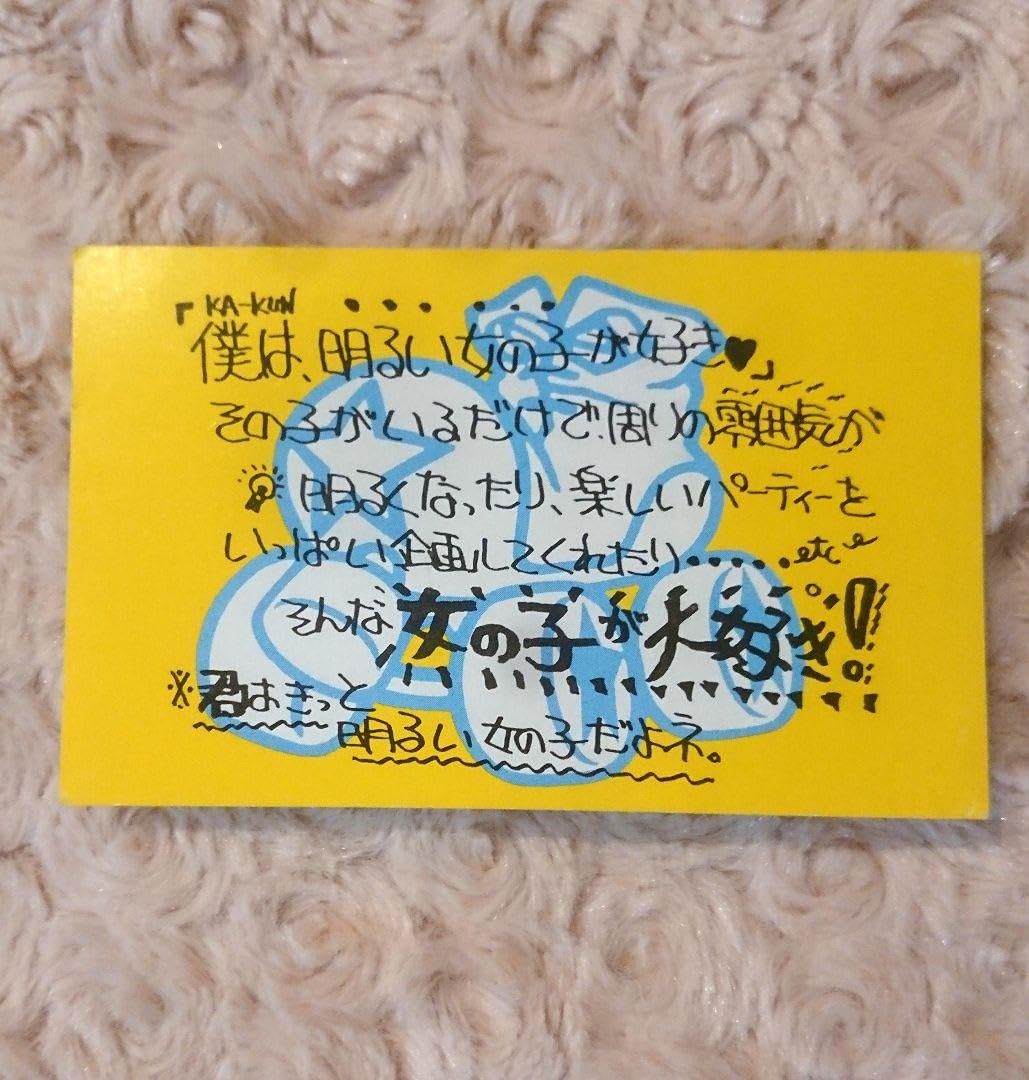 KA-KUN
「僕は、明るい女の子が好き♥」
その子がいるだけで、周りの雰囲気が
明るくなったり、楽しいパーティーを
いっぱい企画してくれたり・・・・・etc
そんな女の子が大好き!
※君はきっと
明るい女の子だよネ。